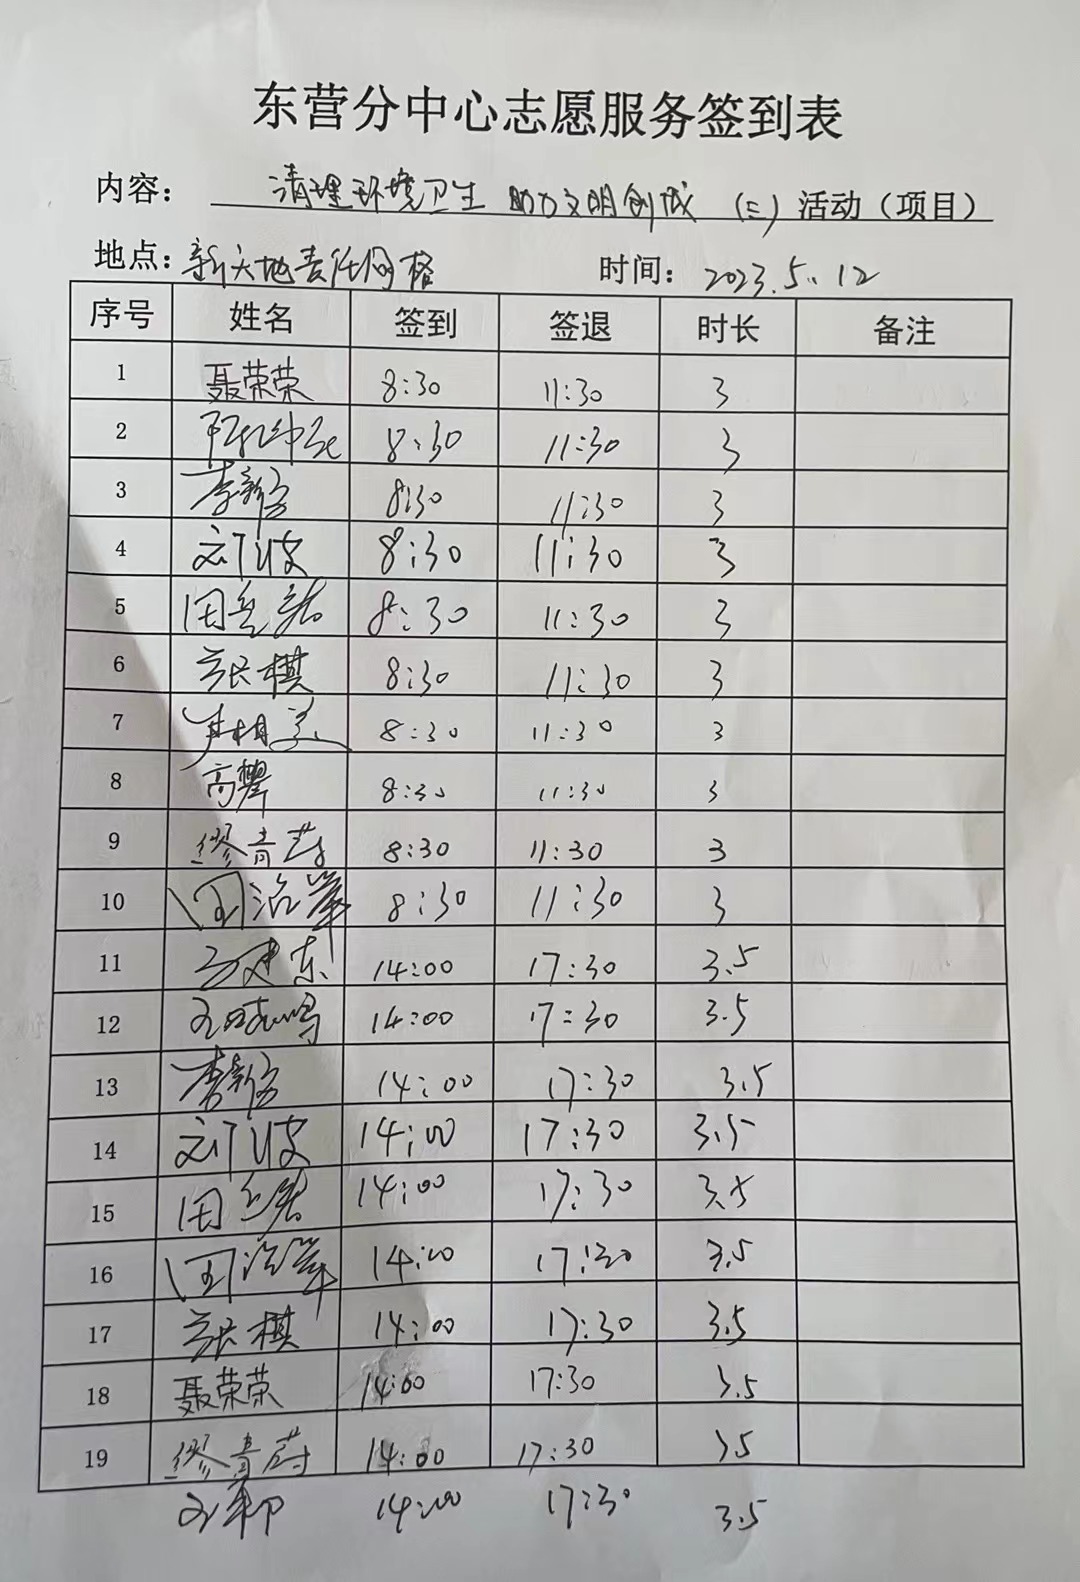 东营分中心志愿服务签到表
内容: 清理环境卫生 助力文明创城 (二) 活动 (项目)
地点: 新天地责任网格 时间: 2023.5.12
序号 姓名 签到 签退 时长 备注
1 聂荣荣 8:30 11:30 3
2 8:30 11:30 3
3 8:30 11:30 3
4 刘波 8:30 11:30 3
5 8:30 11:30 3
6 张棋 8:30 11:30 3
7 8:30 11:30 3
8 8:30 11:30 3
9 缪青 8:30 11:30 3
10 8:30 11:30 3
11 14:00 17:30 3.5
12 14:00 17:30 3.5
13 14:00 17:30 3.5
14 刘波 14:00 17:30 3.5
15 14:00 17:30 3.5
16 14:00 17:30 3.5
17 张棋 14:00 17:30 3.5
18 聂荣荣 14:00 17:30 3.5
19 缪青 14:00 17:30 3.5
14:00 17:30 3.5